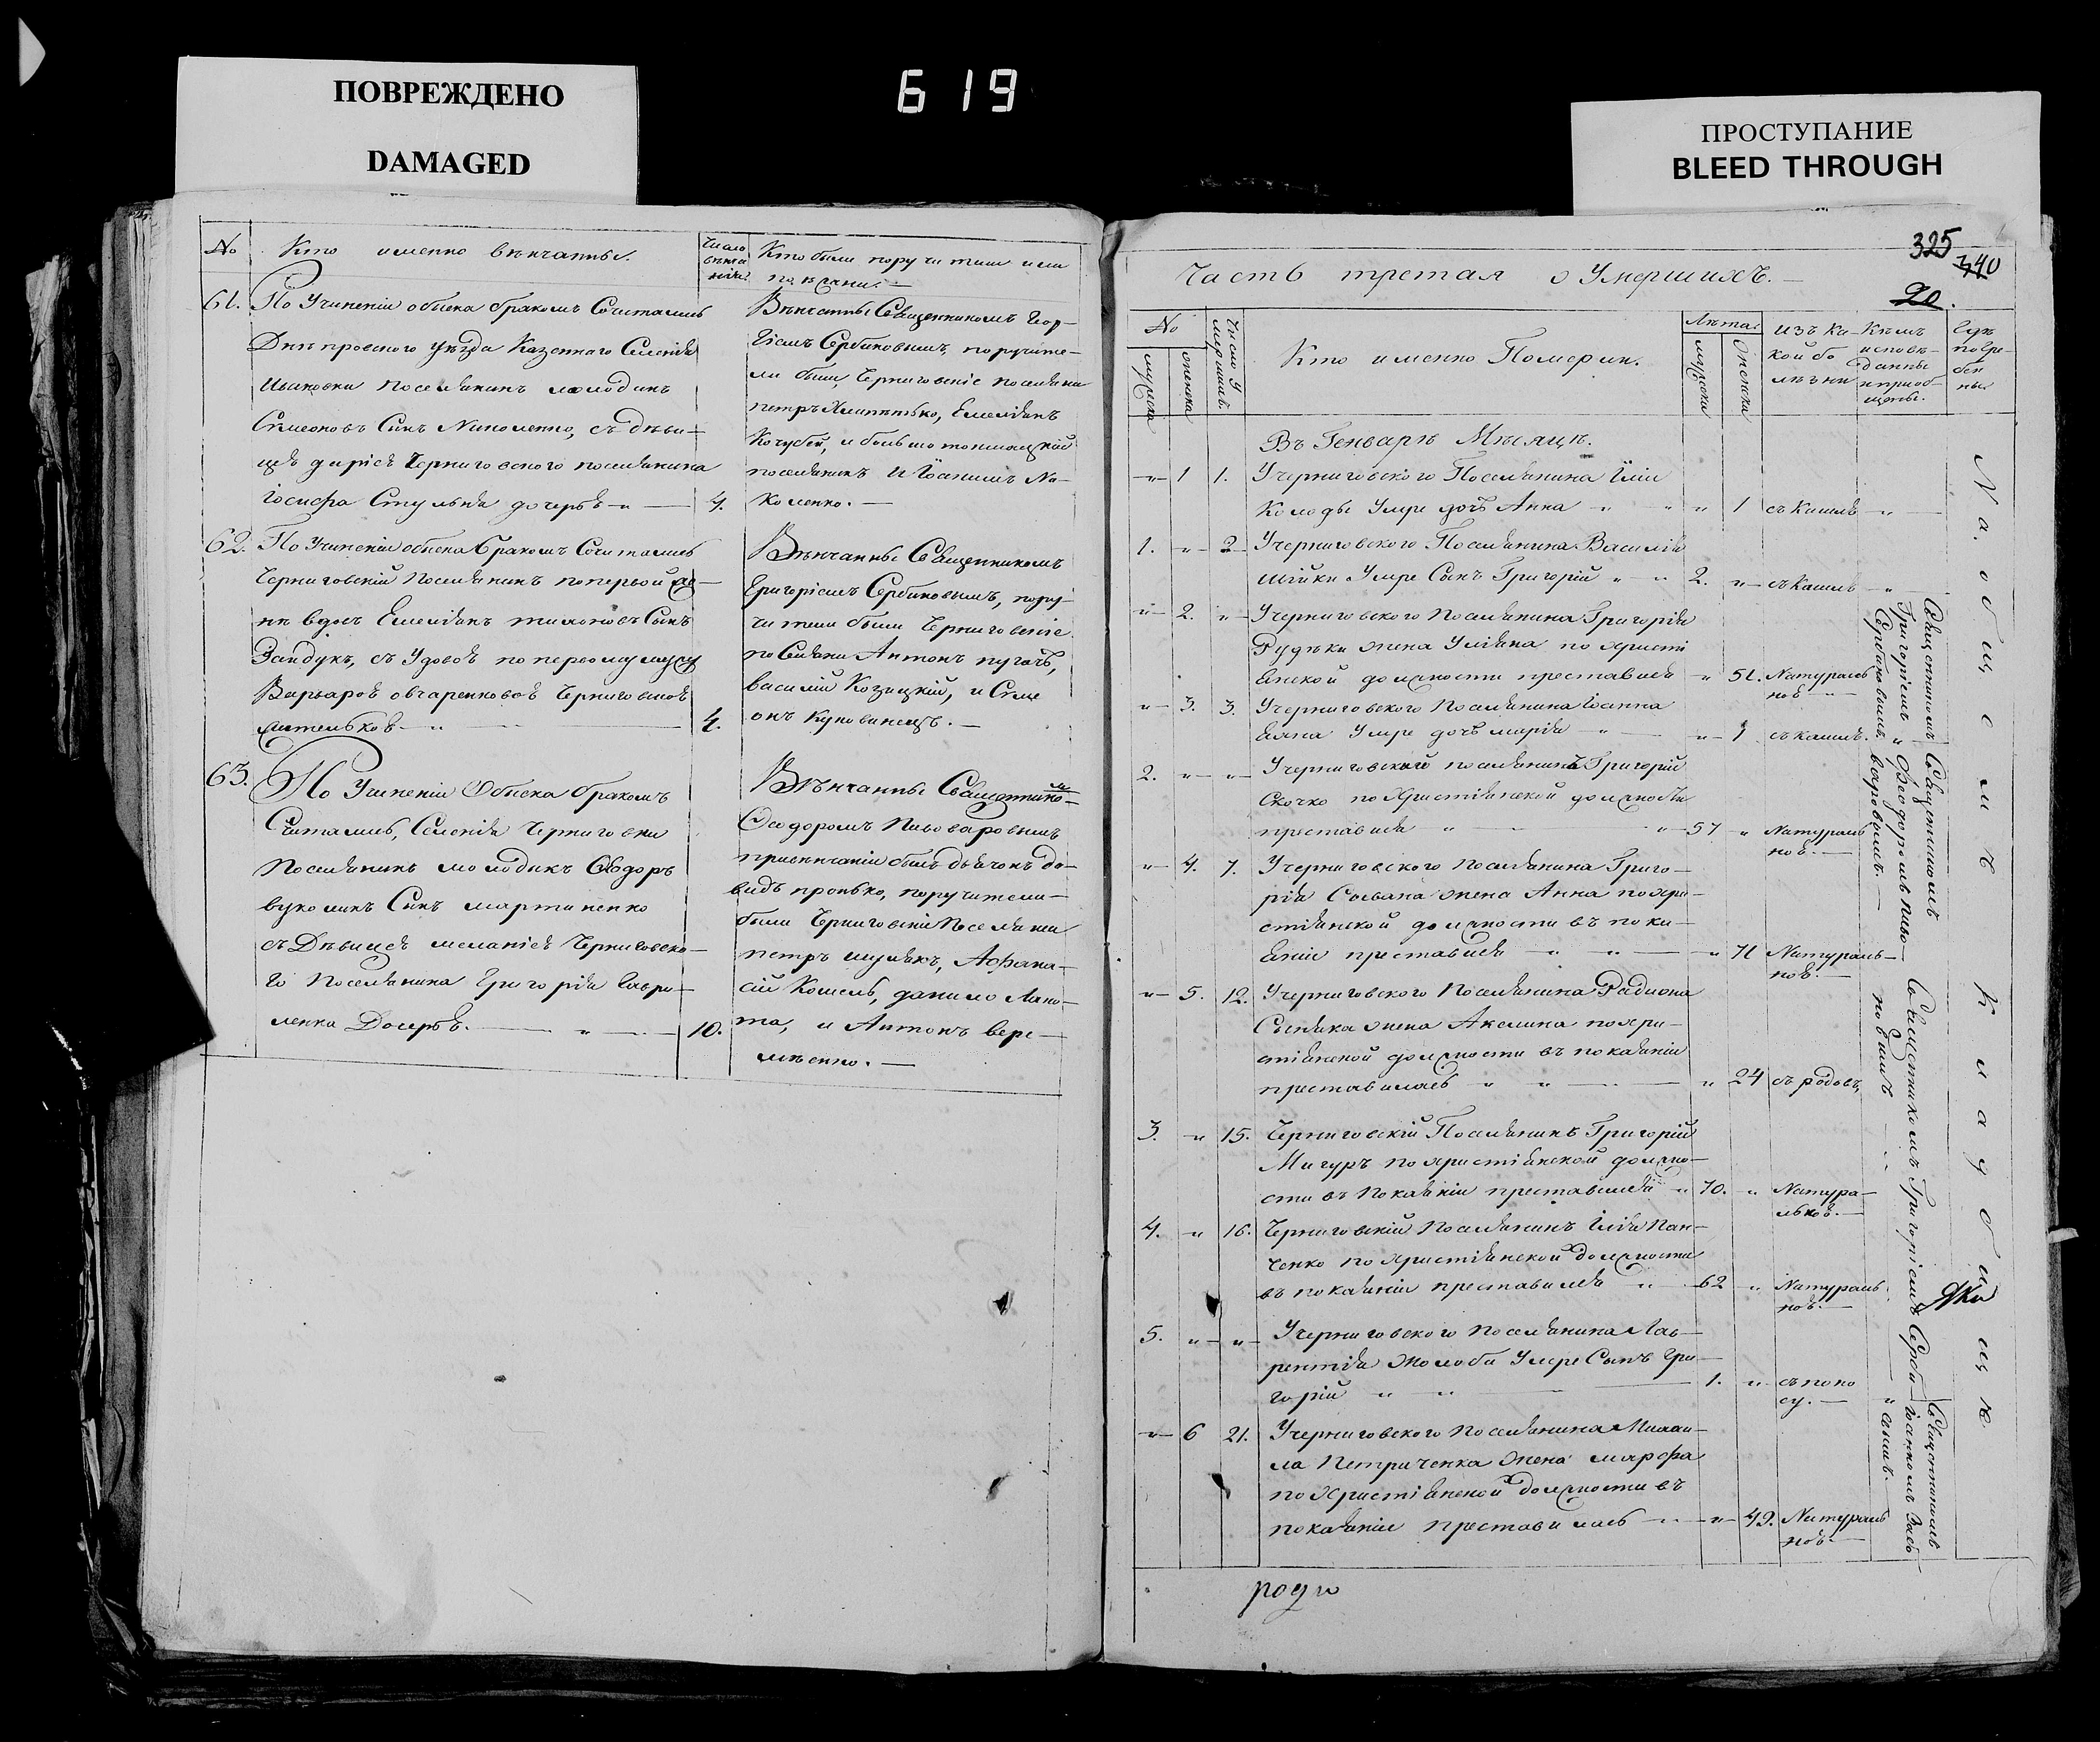 ПОВРЕЖДЕНО
DAMAGED
619
ПРОСТУПАНИЕ
BLEED THROUGH
№ Кто именно вѣнчанны.
Число вѣнчанія
Кто были поручители или
61. По Учиненіи обыска бракомъ Сочитались
Днѣпровского уѣзда Казенного Селенія
Ивановки поселянинъ молодикъ
Симеоновъ Сынъ Николенко, съ дѣви-
цей даріей Черниговского поселянина
Іосифа дочерью 4.
Вѣнчанны Священникомъ
Сербиновымъ, поручите-
ли были, Черниговскіе поселяни
петръ Емелянъ
Кочубей, и большотокмацкій
поселянинъ Ни-
коленко.
62. По Учиненіи обыска Бракомъ Сочитались
Черниговскій Поселянинъ поперьвой
вдовъ Емелянъ Сынъ
съ Удовой по первому мужу
Варварой овчаренковой Черниговской
жительков 4.
Вѣнчанны Священникомъ
Григоріемъ Сербиновымъ, пору-
чители были Черниговскіе
поселяни Антонъ пугачъ,
василій Козицкій, и Симе
онъ куповинецъ.
63. По Учиненіи Обыска бракомъ
Считались, Селенія Черниговки
Поселянинъ молодикъ Ѳеодоръ
Сынъ мартиненко
съ Дѣвицей меланіей Черниговско-
го Поселянина Григорія Гаври-
ленка Дочерью. 10.
Вѣнчанны Священнико-
мъ
Ѳеодоромъ Пивоваровымъ
привѣнчаніи былъ дьячокъ да-
видъ пронько, поручители
были Черниговскіи Поселяни
петръ шулякъ, Афана-
сій Кошель, данило Лапо-
та, и Антонъ Вере-
мѣенко.
325
340
20.
Часть третая о Умершихъ.
№
мужска
женска
Число Умершихъ
Кто именно Померли.
Лѣта
мужска
Женска
изъ Ка-
кой бо
лѣзни
Кѣмъ
исповѣ-
данны
и приоб-
щены.
Гдѣ
погре-
бен
ны
Въ Генварѣ Мѣсяцѣ.
1 1. Учерниговского Поселянина Іліи
Колоды Умре дочь Анна 1 съ Кашлю
1. 2 Учерниговского Поселянина Василія
Шійки Умре Сынъ Григорій 2. съ Кашлю
2. Учерниговского Поселянина Григорія
Рудьки жена Уліяна по христі
янской должности преставися 51. Натураль
ной
3. 3. Учерниговского Поселянина Іоанна
Умре дочь марія 1 съ кашлю.
2. Учерниговский поселянинъ Григорій
Скочко по Христіянской должности
преставися 57 Натураль
ной.
4. 7. Учерниговского Поселянина Григо-
рія жена Анна похри-
стіянской должности въ пока-
яніи преставися 71 Натураль-
ной.
5. 12. Учерниговского Поселянина Радиона
жена Акелина похри-
стіянской должности въ покаяніи
преставилась 24 съ родовъ
3. 15. Черниговскій Поселянинъ Григорій
Мигуръ по христіянской должно-
сти въ Покаяніи преставился 70. Натура-
льной.
4. 16. Черниговскій Поселянинъ Ілія Пан-
ченко по Христіянской должности
въ покаяніи преставился 62 Натураль
ной.
5. Учерниговского Поселянина Лав-
рентія Жолоба Умре Сынъ Гри-
горій 1. съ поно
су.
6 21. Учерниговского Поселянина Михаи-
ла Петриченка Жена марфа
по Христіянской должности въ
покаяніи преставилась 49. Натураль
ной
Священникомъ
Григоріемъ
Сербиновымъ,
Священникомъ
Ѳеодоромъ Пиво-
варовымъ.
Священникомъ Григоріемъ Серби-
новымъ
Священникомъ
На общемъ кладбищѣ
роди